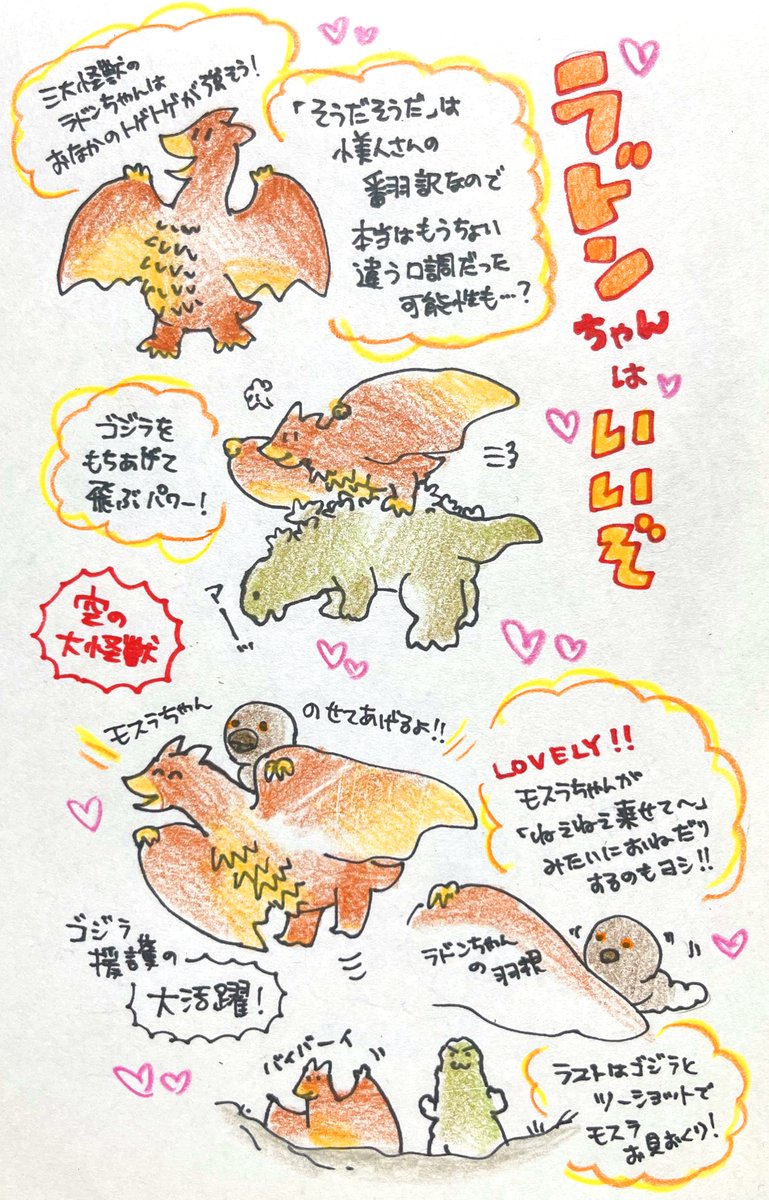 ラドン
ちゃん
は
いいぞ
三大怪獣の
ラドンちゃんは
おなかのトゲトゲが強そう!
「そうだそうだ」は
小美人さんの
翻訳なので
本当はもうちょい
違う口調だった
可能性も…?
ゴジラを
もちあげて
飛ぶパワー!
アー…
空の
大怪獣
モスラちゃん
のせてあげるよ!!
LOVELY!!
モスラちゃんが
「ねえねえ乗せて〜」
みたいにおねだり
するのもヨシ!!
ゴジラ
援護の
大活躍!
ラドンちゃん
の羽根
バイバーイ
ラストはゴジラと
ツーショットで
モスラ
お見おくり!